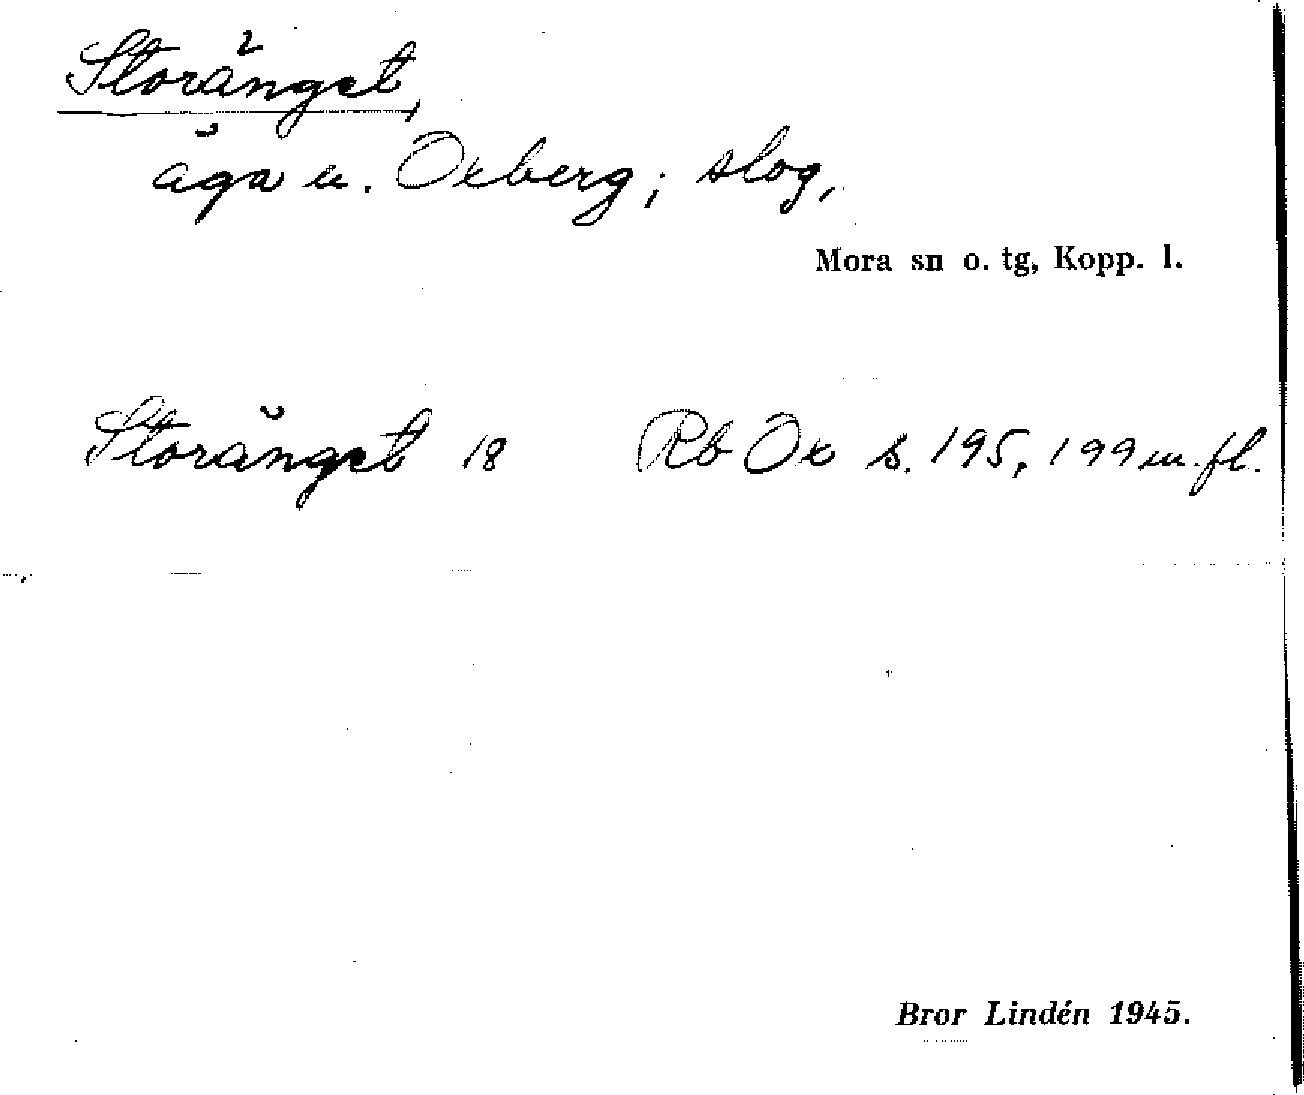 Storänget,
äga u. Oxberg; slog,
Mora sn o. tg, Kopp. l.
Storänget 18 Rb Ox s. 195, 199 m. fl.
Bror Lindén 1945.